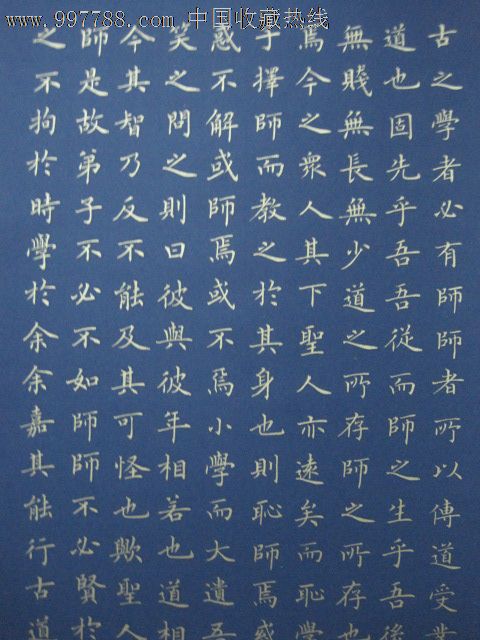 www.997788.com 中国收藏热线
古之學者必有師師者所以傳道受
道也固先乎吾吾從而師之生乎吾後
無賤無長無少道之所存師之所存也
焉今之衆人其下聖人亦遠矣而恥學
子擇師而教之於其身也則恥師焉惑
惑不解或師焉或不焉小學而大遺吾
笑之問之則曰彼與彼年相若也道相
今其智乃反不能及其可怪也歟聖人
師是故弟子不必不如師師不必賢於
之不拘於時學於余余嘉其能行古道